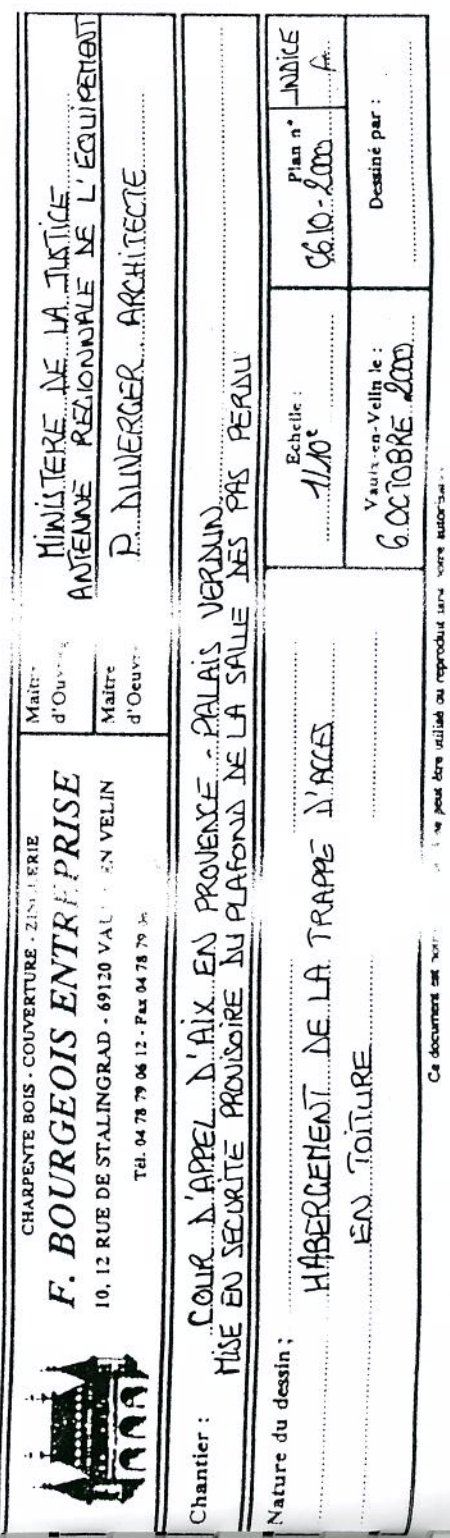 CHARPENTE BOIS - COUVERTURE - ZINGUERIE
F. BOURGEOIS ENTREPRISE
10, 12 RUE DE STALINGRAD - 69120 VAU EN VELIN
Tél. 04 78 79 06 12 - Fax 04 78 79
Maître d'Ouvrage
MINISTERE DE LA JUSTICE
ANTENNE REGIONNALE DE L'EQUIPEMENT
Maitre d'Oeuvre
P. DUVERGER ARCHITECTE
Chantier :
COUR D'APPEL D'AIX EN PROVENCE - PALAIS VERDUN
MISE EN SECURITE PROVISOIRE DU PLAFOND DE LA SALLE DES PAS PERDU
Nature du dessin :
HABERGEMENT DE LA TRAPPE D'ACCES
EN TOITURE
Echelle :
1/10e
Plan n°
C6.10-2000
INDICE
A
Vaulx-en-Velin le :
6 OCTOBRE 2000
Dessiné par :
Ce document est
ne peut être utilisé ou reproduit sans notre